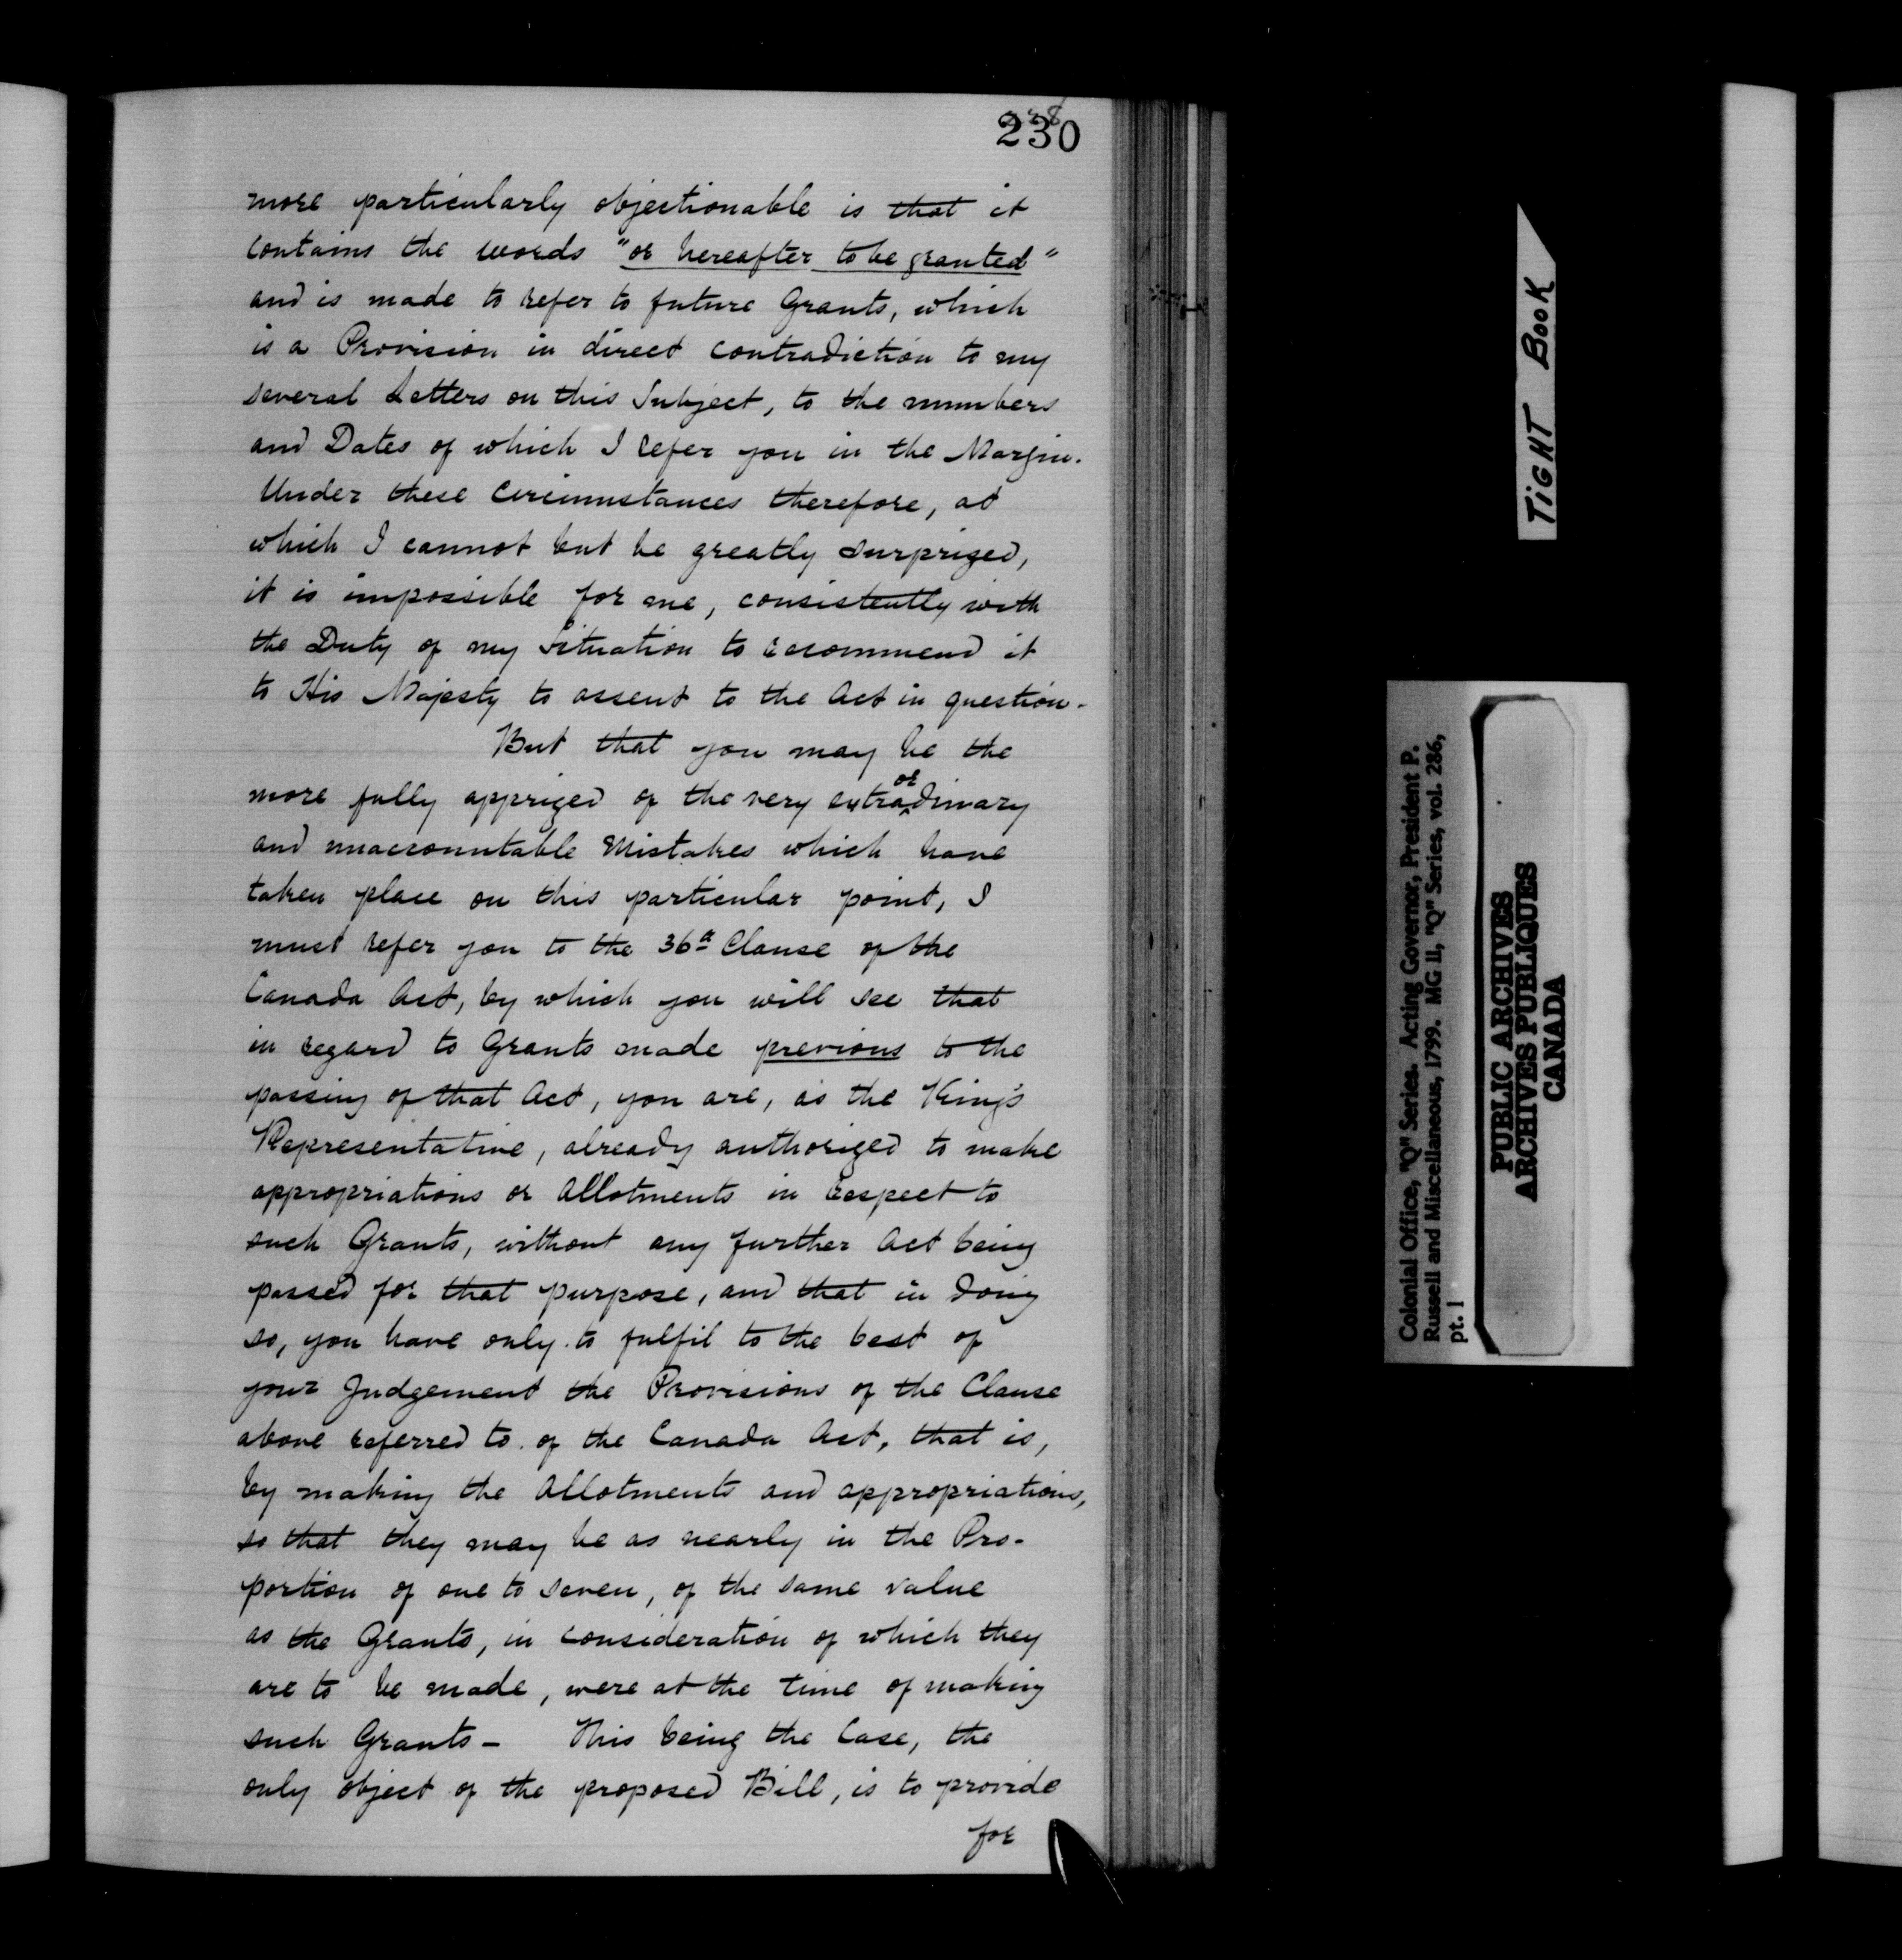 230
more particularly objectionable is that it
contains the words "or hereafter to be granted"
and is made to refer to future Grants, which
is a Provision in direct contradiction to my
several Letters on this Subject, to the numbers
and Dates of which I refer you in the Margin.
Under these Circumstances therefore, at
which I cannot but be greatly surprized,
it is impossible for me, consistently with
the Duty of my Situation to recommend it
to His Majesty to assent to the Act in question.
But that you may be the
more fully apprized of the very extraordinary
and unaccountable Mistakes which have
taken place on this particular point, I
must refer you to the 36th Clause of the
Canada Act, by which you will see that
in regard to Grants made previous to the
passing of that Act, you are, as the King's
Representative, already authorized to make
appropriations or Allotments in respect to
such Grants, without any further Act being
passed for that purpose, and that in doing
so, you have only to fulfil to the best of
your Judgement the Provisions of the Clause
above referred to of the Canada Act, that is,
by making the Allotments and appropriations,
so that they may be as nearly in the Pro-
portion of one to seven, of the same value
as the Grants, in consideration of which they
are to be made, were at the time of making
such Grants - This being the Case, the
only object of the proposed Bill, is to provide
for
TIGHT BOOK
Colonial Office, "Q" Series. Acting Governor, President P.
Russell and Miscellaneous, 1799. MG 11, "Q" Series, vol. 286,
pt. 1
PUBLIC ARCHIVES
ARCHIVES PUBLIQUES
CANADA